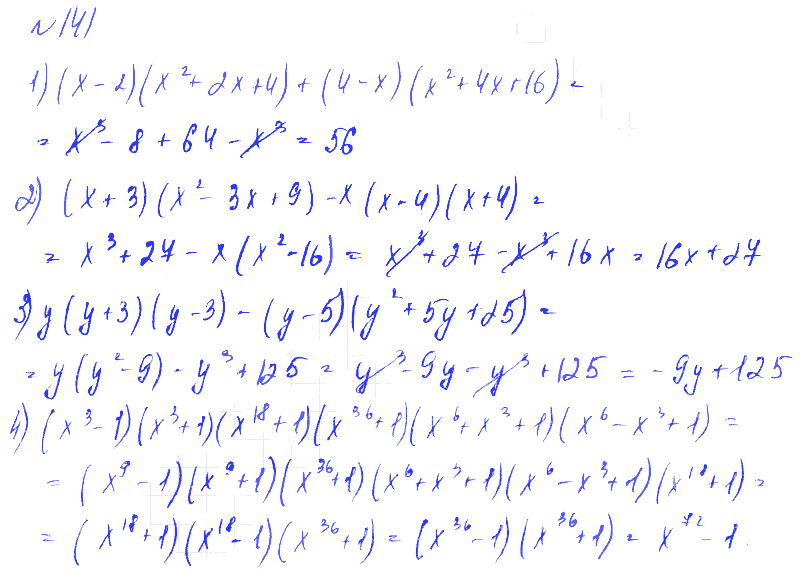 №141
1) (x-2)(x²+2x+4)+(4-x)(x²+4x+16)=
= x³-8+64-x³=56
2) (x+3)(x²-3x+9)-x(x-4)(x+4)=
= x³+27-x(x²-16)= x³+27-x³+16x=16x+27
3) y(y+3)(y-3)-(y-5)(y²+5y+25)=
= y(y²-9)-y³+125= y³-9y-y³+125=-9y+125
4) (x³-1)(x³+1)(x¹⁸+1)(x³⁶+1)(x⁶+x³+1)(x⁶-x³+1)=
= (x⁹-1)(x⁹+1)(x³⁶+1)(x⁶+x³+1)(x⁶-x³+1)(x¹⁸+1)=
= (x¹⁸+1)(x¹⁸-1)(x³⁶+1)=(x³⁶-1)(x³⁶+1)= x⁷²-1.